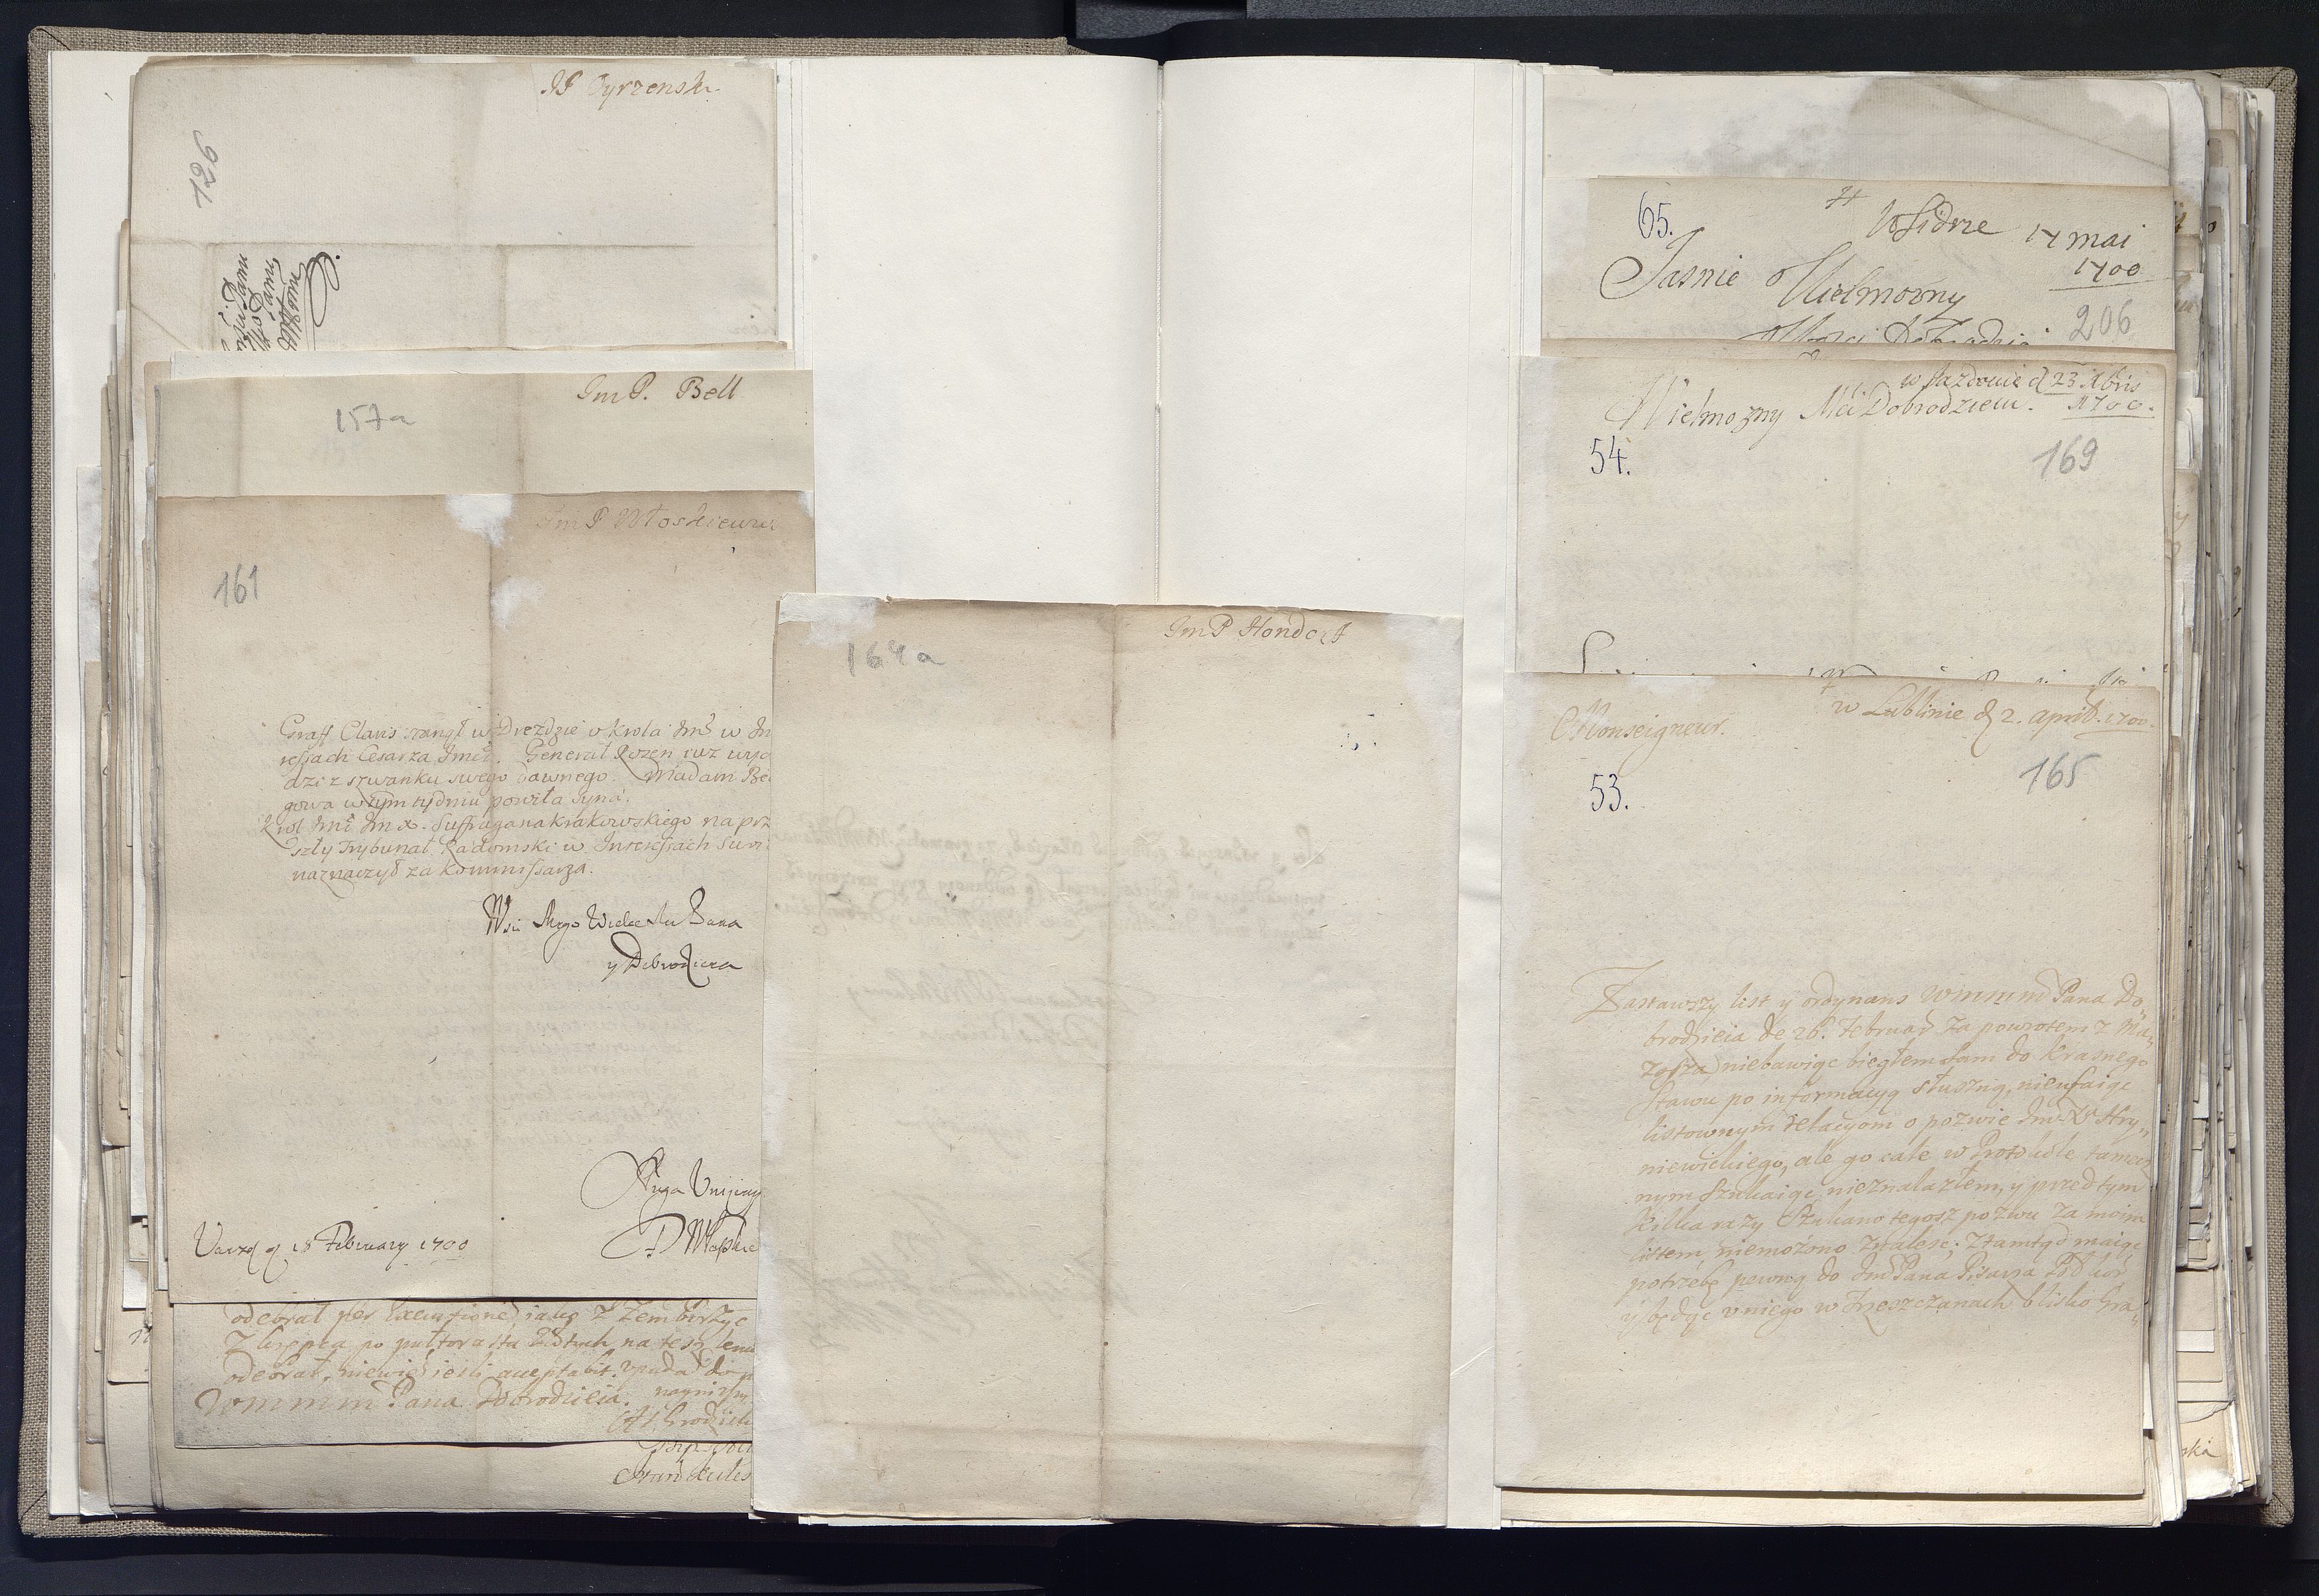 Dyrzenski
126
JmP. Bell
157a
JmP
161
Graff Clari stanął w Dreździe v Krola Jmści w In
ressach Cesarza Jmći. Generał Rozen iuż wyc
dzi z szwanku swego dawnego. Madam Be
gowa w tym tydniu powiła syná.
Krol Jmć Jm X. Suffragana Krakowskiego na prz
szły Trybunał Radomski w Interessach Swo
naznaczył za Kommissarza.
Mgo Wielce Pana
y Dobrodzieia
Sługa Vniżony
18 February 1700
odebrał per Executionem iako z
po pułtorasta Złotych, na tesz
odebrał, niewiem ieśli acceptabit. Vpada do
WMMM Pana Dobrodzieia.
164a
JmP Hondorf
65.
W Sidrze 17 mai
1700
Jasnie Wielmozny
206
w Jazdowie d 23 Xbris
1700.
Wielmozny Mći Dobrodzieiu.
54.
169
w Lublinie d 2. april. 1700.
Monseigneur.
165
53.
Zastawszy list y ordynans WMMM Pana Do,,
brodzieia de 26. Februar za powrotem z Ma,,
zosza, niebawiąc biegłem sam do Krasnego
Stawu po informacyą słuszną, nieufaiąc
listownym relacyom o pozwie Jm X Hry,,
niewickiego, ale go cale w Protokole tamecz
nym szukaiąc nieznalazłem, y przed tym
kilka razy szukano tegosz pozwu za moim
listem, niemożono znaleść; ztamtąd maiąc
potrzebę pewną do Jm Pana Pisarza
y będąc v niego w Trzeszczanach blisko Gra,,